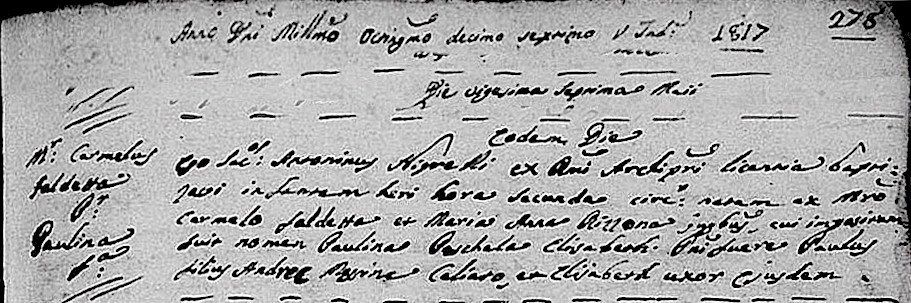 Anno Dni Millmo Octingmo decimo septimo V Ind: 1817
276
Die vigesima septima Maii
Eodem Die
Mr: Carmelus
Faldetta
Pr:
Paulina
fa:
Ego Sacs: Antoninus Nigrelli ex Dni Archipri licentia bapti-
zavi infantem heri hora secunda circr: natam ex Mro
Carmelo Faldetta et Maria Anna jugbus, cui impositum
fuit nomen Paulina Paschala Elisabeth: Pni fuere Paulus
filius Andree Calaro, et Elisabeth uxor ejusdem